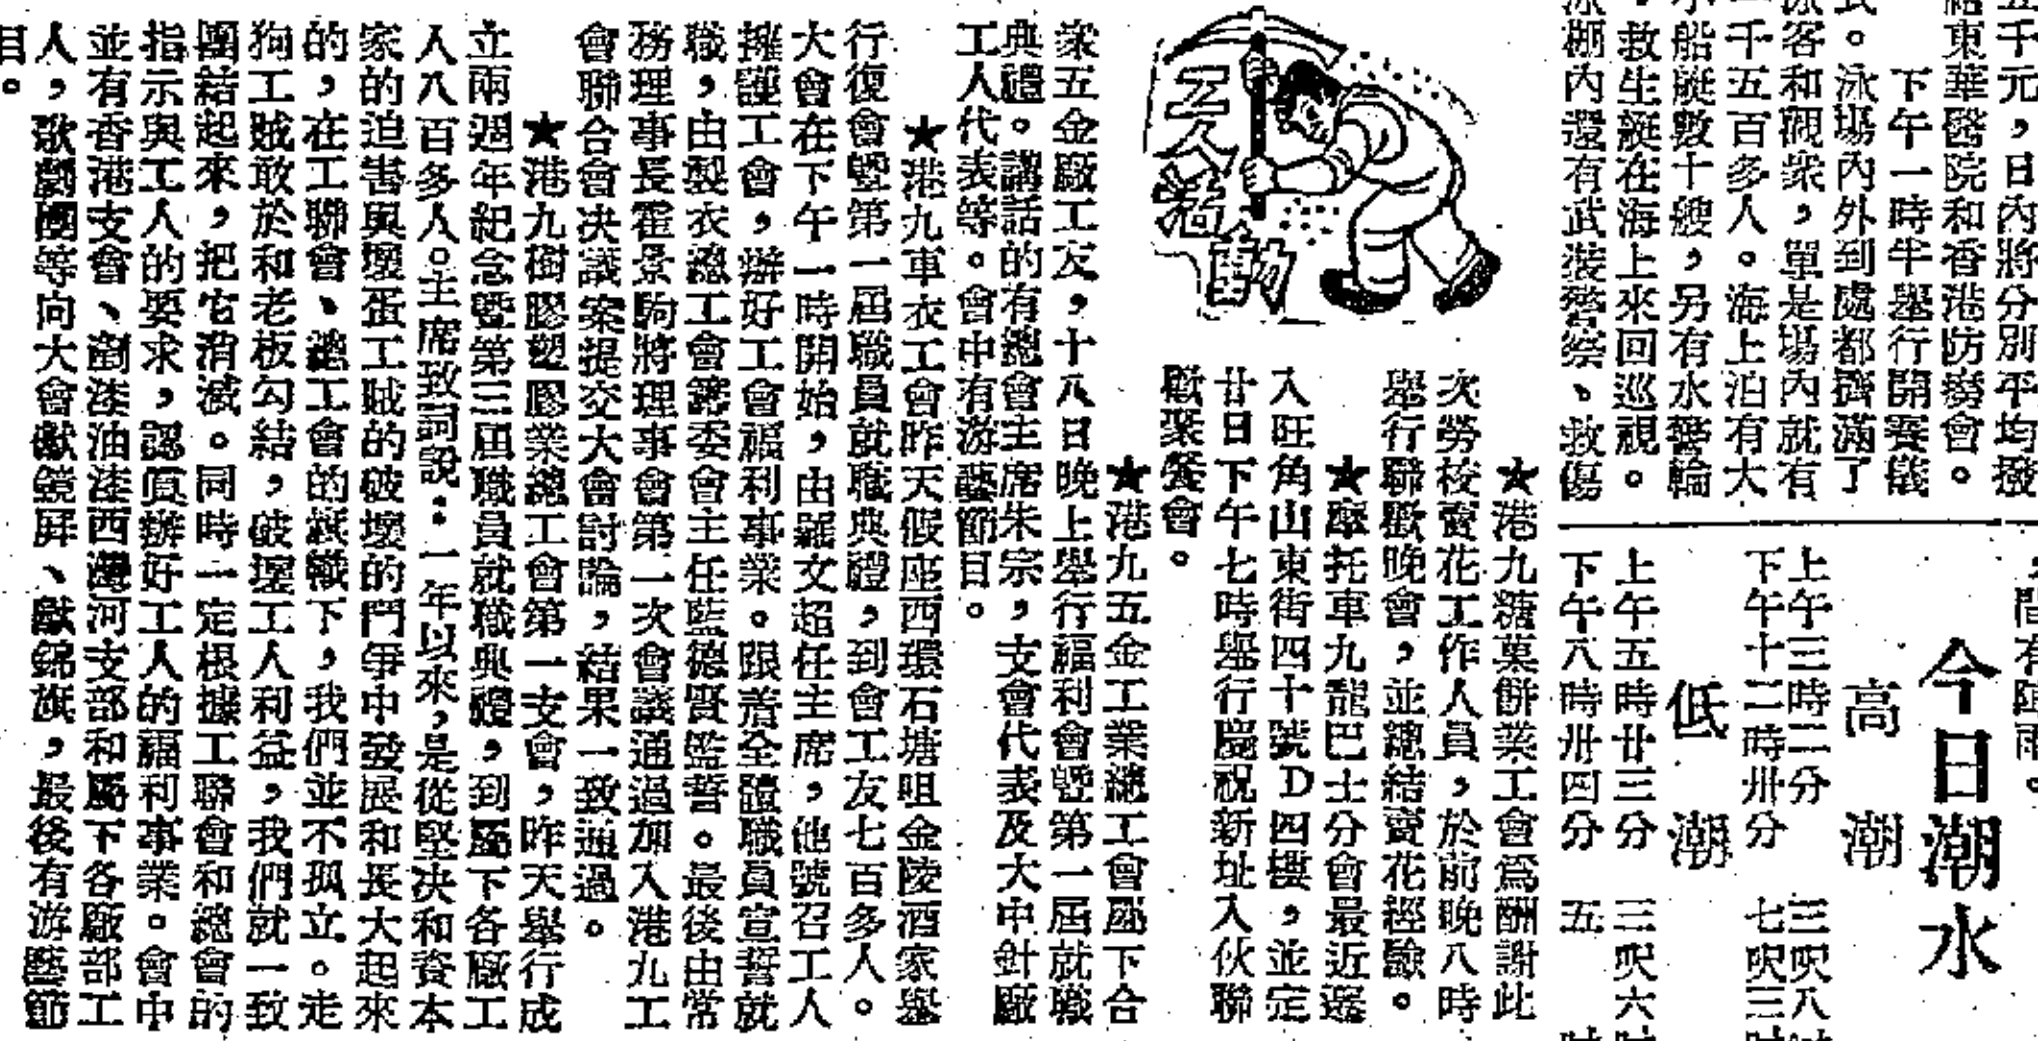 五千元，日內將分別平均撥
給東華醫院和香港防癆會。
下午一時半舉行開賽儀
式。泳場內外到處都擠滿了
泳客和觀衆，單是場內就有
一千五百多人。海上泊有大
小船艇數十艘，另有水警輪
，救生艇在海上來回巡視。
泳棚內還有武裝警察、救傷
，間有陣雨。
今日潮水
高　潮
上午三時二分　三呎八
下午十二時卅分　七呎三
低　潮
上午五時廿三分　三呎六
下午八時卅四分　五
工人活動
★港九糖菓餅業工會爲酬謝此
次勞校賣花工作人員，於前晚八時
舉行聯歡晚會，並總結賣花經驗。
★摩托車九龍巴士分會最近遷
入旺角山東街四十號D四樓，並定
廿日下午七時舉行慶祝新址入伙聯
歡聚餐會。
★港九五金工業總工會屬下合
衆五金廠工友，十八日晚上舉行福利會曁第一屆就職
典禮。講話的有總會主席朱宗，支會代表及大中針廠
工人代表等。會中有游藝節目。
★港九車衣工會昨天假座西環石塘咀金陵酒家舉
行復會曁第一屆職員就職典禮，到會工友七百多人。
大會在下午一時開始，由羅文超任主席，他號召工人
擁護工會，辦好工會福利事業。跟着全體職員宣誓就
職，由製衣總工會籌委會主任藍德賢監誓。最後由常
務理事長霍景駒將理事會第一次會議通過加入港九工
會聯合會决議案提交大會討論，結果一致通過。
★港九樹膠塑膠業總工會第一支會，昨天舉行成
立兩週年紀念曁第三屆職員就職典禮，到屬下各廠工
人八百多人。主席致詞說：一年以來，是從堅决和資本
家的迫害與壞蛋工賊的破壞的鬥爭中發展和長大起來
的，在工聯會、總工會的旗幟下，我們並不孤立。走
狗工賊敢於和老板勾結，破壞工人利益，我們就一致
團結起來，把它消滅。同時一定根據工聯會和總會的
指示與工人的要求，認眞辦好工人的福利事業。會中
並有香港支會、劊漆油漆西灣河支部和屬下各廠部工
人，歌劇團等向大會獻鏡屏、獻錦旗，最後有游藝節
目。